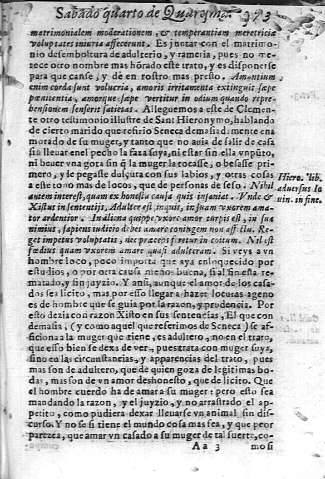 Sabado quarto de Quaresma. 373
matrimonialem moderationem, & temperantiam meretriciæ
voluptates iniuria affecerunt. Es juntar con el matrimo
nio desemboltura de adulterio, y rameria, pues no me-
rece otro nombre mas hõrado este trato, y es disponerse
para que canse, y dè en rostro mas presto. Amantium
enim corda sunt volucria, amoris irritamenta extinguit sæpe
pœnitentia, amorque sæpe vertitur in odium quando repre-
hensionem senserit
Alleguemos a este de Clemen-
te otro testimonio illustre de Sant Hieronymo, hablando
de cierto marido que refirio Seneca demasiadamente ena
morado de su muger, y tanto que no auia de salir de casa
siu lleuar en el pecho la faxa suya, ni estar sin ella vn pũto,
ni beuer vna gota sin q̃ la muger la tocasse, o besasse pri-
mero, y le pegasse dulçura con sus labios, y otras cosas
a este tono mas de locos, que de personas de seso. Nihil
autem interest, quam ex honesta causa quis insaniat. Vnde &
Xistus in sententijs, Adulter est inquit, in suam vxorem ama-
tor ardentior. In aliena quippe vxore amor turpis est, in sua
nimius, sapiens iudicio debet amare coniugem non affectu. Re-
get impetus voluptatis, nec præceps feretur in coitum. Nil est
fœdius quam vxorem amare quasi adulteram. Si veys a vn
hombre loco, poco importa que aya enloquecido por
estudios, o por otra causa menos buena, si al fin esta re-
matado, y sin juyzio. Y ansi, aunque el amor de los casa-
dos sea licito, mas por esso llegar a hazer locuras ageno
es de hombre que se guia por la razon, y prudencia. Por
esto dezia con razon Xisto en sus sentencias, El que con
demasia, (y como aquel que referimos de Seneca) se afi-
siciona a la muger que tiene, es adultero, no en el trato,
que esso bien se dexa de ver, pues trata con muger suya,
sino en las circunstancias, y apparencias del trato, pues
mas son de adultero, que de quien goza de legitimas bo-
das, mas son de vn amor deshonesto, que de licito. Que
el hombre cuerdo ha de amar a su muger: pero esto sea
mandando la razon, y el juyzio, y no arrastrado el ap-
petito, como pudiera dexar lleuarse vn animal sin dis-
curso. Y no se si tiene el mundo cosa mas fea, y que peor
parezca, que amar vn casado a su muger de tal suerte, co-
Aa 3 mo si
Hiero. lib.
aduersus Io
uin. in fine.